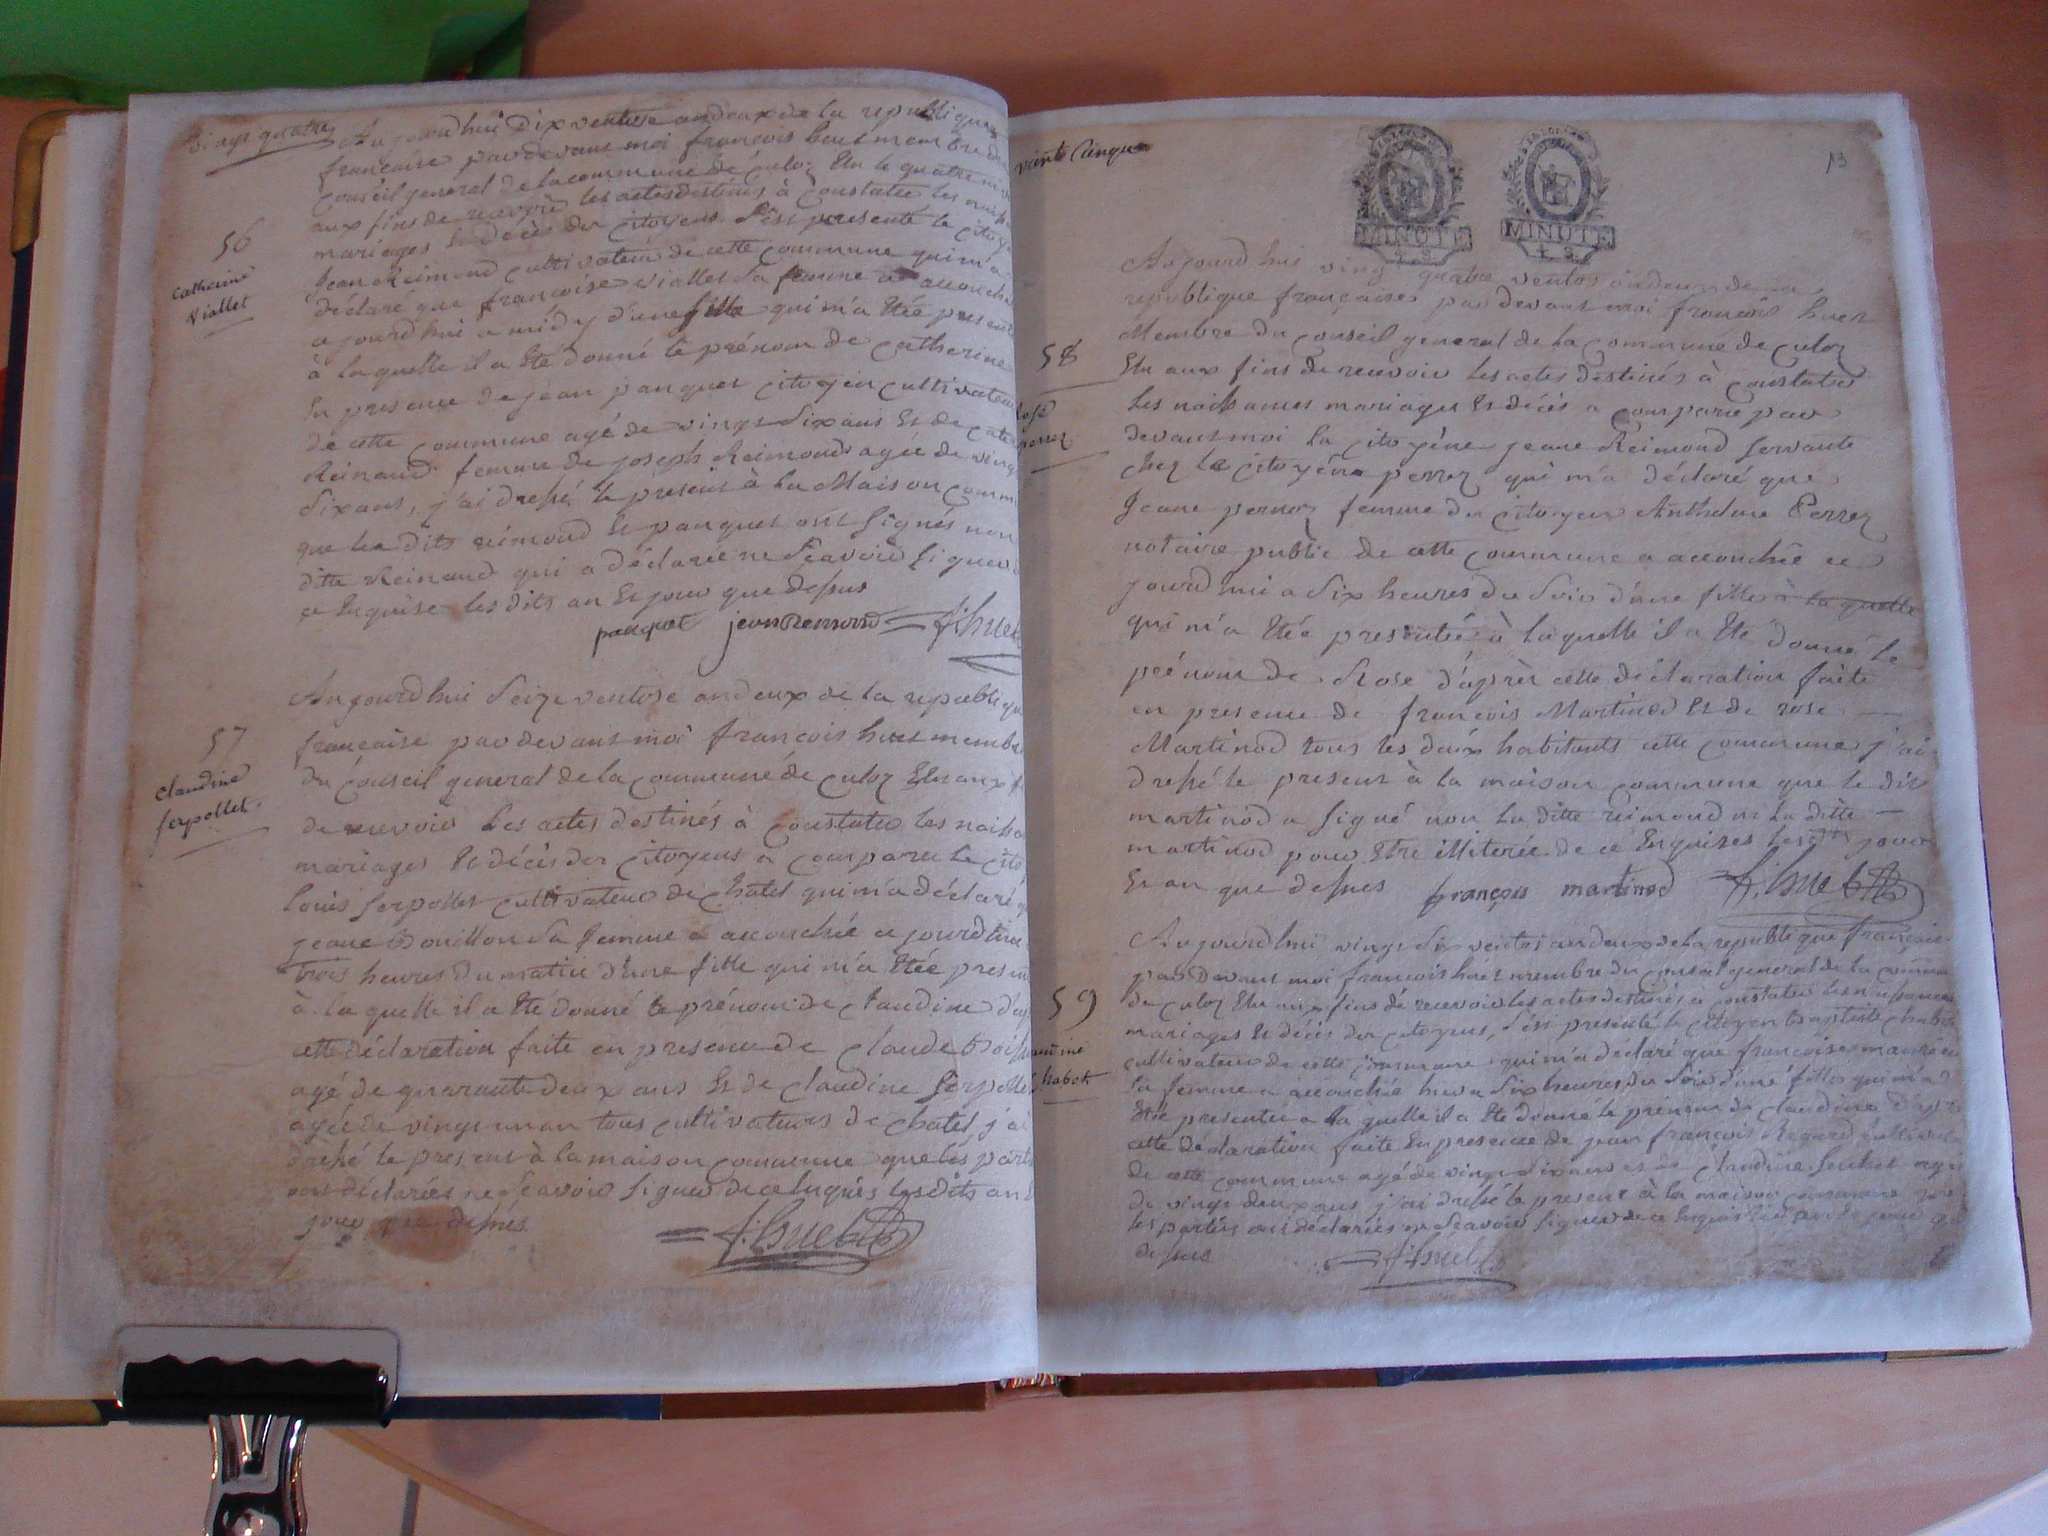 vingt quatre
Aujourdhui Dix ventose an deux de la republique
francaise par devant moi françois huet membre du
Conseil general de la commune de Culoz Elu le quatre
aux fins de recevoir les actes destinés à Constater les
mariages Et decès des Citoyens S'est presenté le Citoyen
56
Catherine
Viallet
Jean Reimond cultivateur de cette commune qui m'a
déclaré que françoise viallet Sa femme a accouché
ajourdhui a midy d'une fille qui m'a Etée present
à la quelle il a Eté donné le prénom de Catherine
En presence de jean panquet Citoyen cultivateur
de cette commune agé de vingt Six ans Et de
Reinaud femme de joseph Reimond agée de vingt
Six ans, j'ai dressé le present à la Maison comm
que les dits reimond Et panquet ont Signés non
ditte Reinaud qui a déclarée ne Scavoir Signer
ce Enquise les dits an Et jour que dessus
panquet jean Remond = f: huet
Aujourdhui Seize ventose an deux de la republiqu
57
Claudine
Serpollet
francaise par devant moi francois huet membr
du Conseil general de la commune de Culoz Elu aux f
de recevoir Les actes destinés à Constater les naissa
mariages Et décès des Citoyens a comparu le Cito
Louis Serpollet cultivateur de Chatel qui m'a déclaré q
jeane Bouillon Sa femme a accouchée ce jourdhui
trois heures du matin d'une fille qui m'a Etée presen
à la quelle il a Eté donné le prénom de Claudine d'ap
cette déclaration faite en presence de claude
agé de quarante deux ans Et de Claudine Serpollet
agée de vingt un an tous cultivateurs de Chatel, j'ai
dressé le present à la maison commune que les parti
ont déclarées ne Scavoir Signer de ce Enquis Les dits an E
jour que dessus
= f: huet
vint Cinque
13
MINUTE
MINUTE
Aujourd'hui vingt quatre ventos an deux de la
republique française par devant moi françois huet
58
Rose
perrez
Membre du Conseil general de la Commune de Culoz
Elu aux fins de recevoir Les actes destinés à Constater
Les naissances mariages Et décès a Comparu par
devant moi la Citoyéne jeane Reimond servante
Chez le Citoyéna perrez qui m'a déclaré que
Jeane pernoz femme du Citoyen Anthelme Perrez
notaire public de cette commune a accouchée ce
jourdhui a Six heures du Soir d'une fille à la quelle
qui m'a Etée presentée à laquelle il a Eté donné le
prénom de Rose d'après cette déclaration faite
en presence de francois Martinod Et de rose
Martinod tous les deux habitants cette commune j'ai
dressé le present à la maison commune que le dit
martinod a Signé non la ditte reimond ni la ditte
martinod pour Etre illiterée de ce Enquises Les dits jour
Et an que dessus françois martinod = f: huet
59
Claudine
Chabot
Aujourdhui vingt Six ventos an deux de la republique française
par devant moi francois huet membre du Conseil general de la Commune
de Culoz Elu aux fins de recevoir les actes destinés à constater les naissances
mariages Et décès des Citoyens, S'est presenté le Citoyen Baptiste Chabot
cultivateur de cette commune qui m'a déclaré que francoise
Sa femme a accouchée hier a Six heures du Soir d'une fille qui m'a
Etée presentée a la quelle il a Eté donné le prénom de Claudine D'apr
cette déclaration faite En presence de jean françois Regard cultivat
de cette commune agé de vingt Six ans et de Claudine agée
de vingt deux ans j'ai dressé le present à la maison commune que
les parties ont déclarées ne Scavoir Signer de ce Enquis les an et jour que
dessus
= f: huet